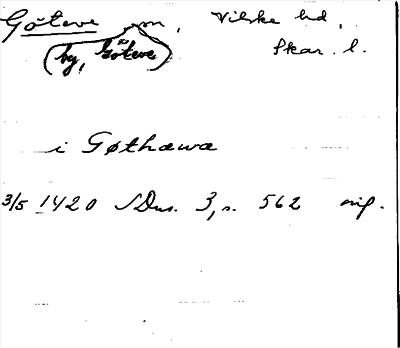 Göteve sn, Vilske hd,
(by, Göteve) Skar. l.
i Gøthæwæ
3/5 1420 SDns. 3, s. 562 orig.